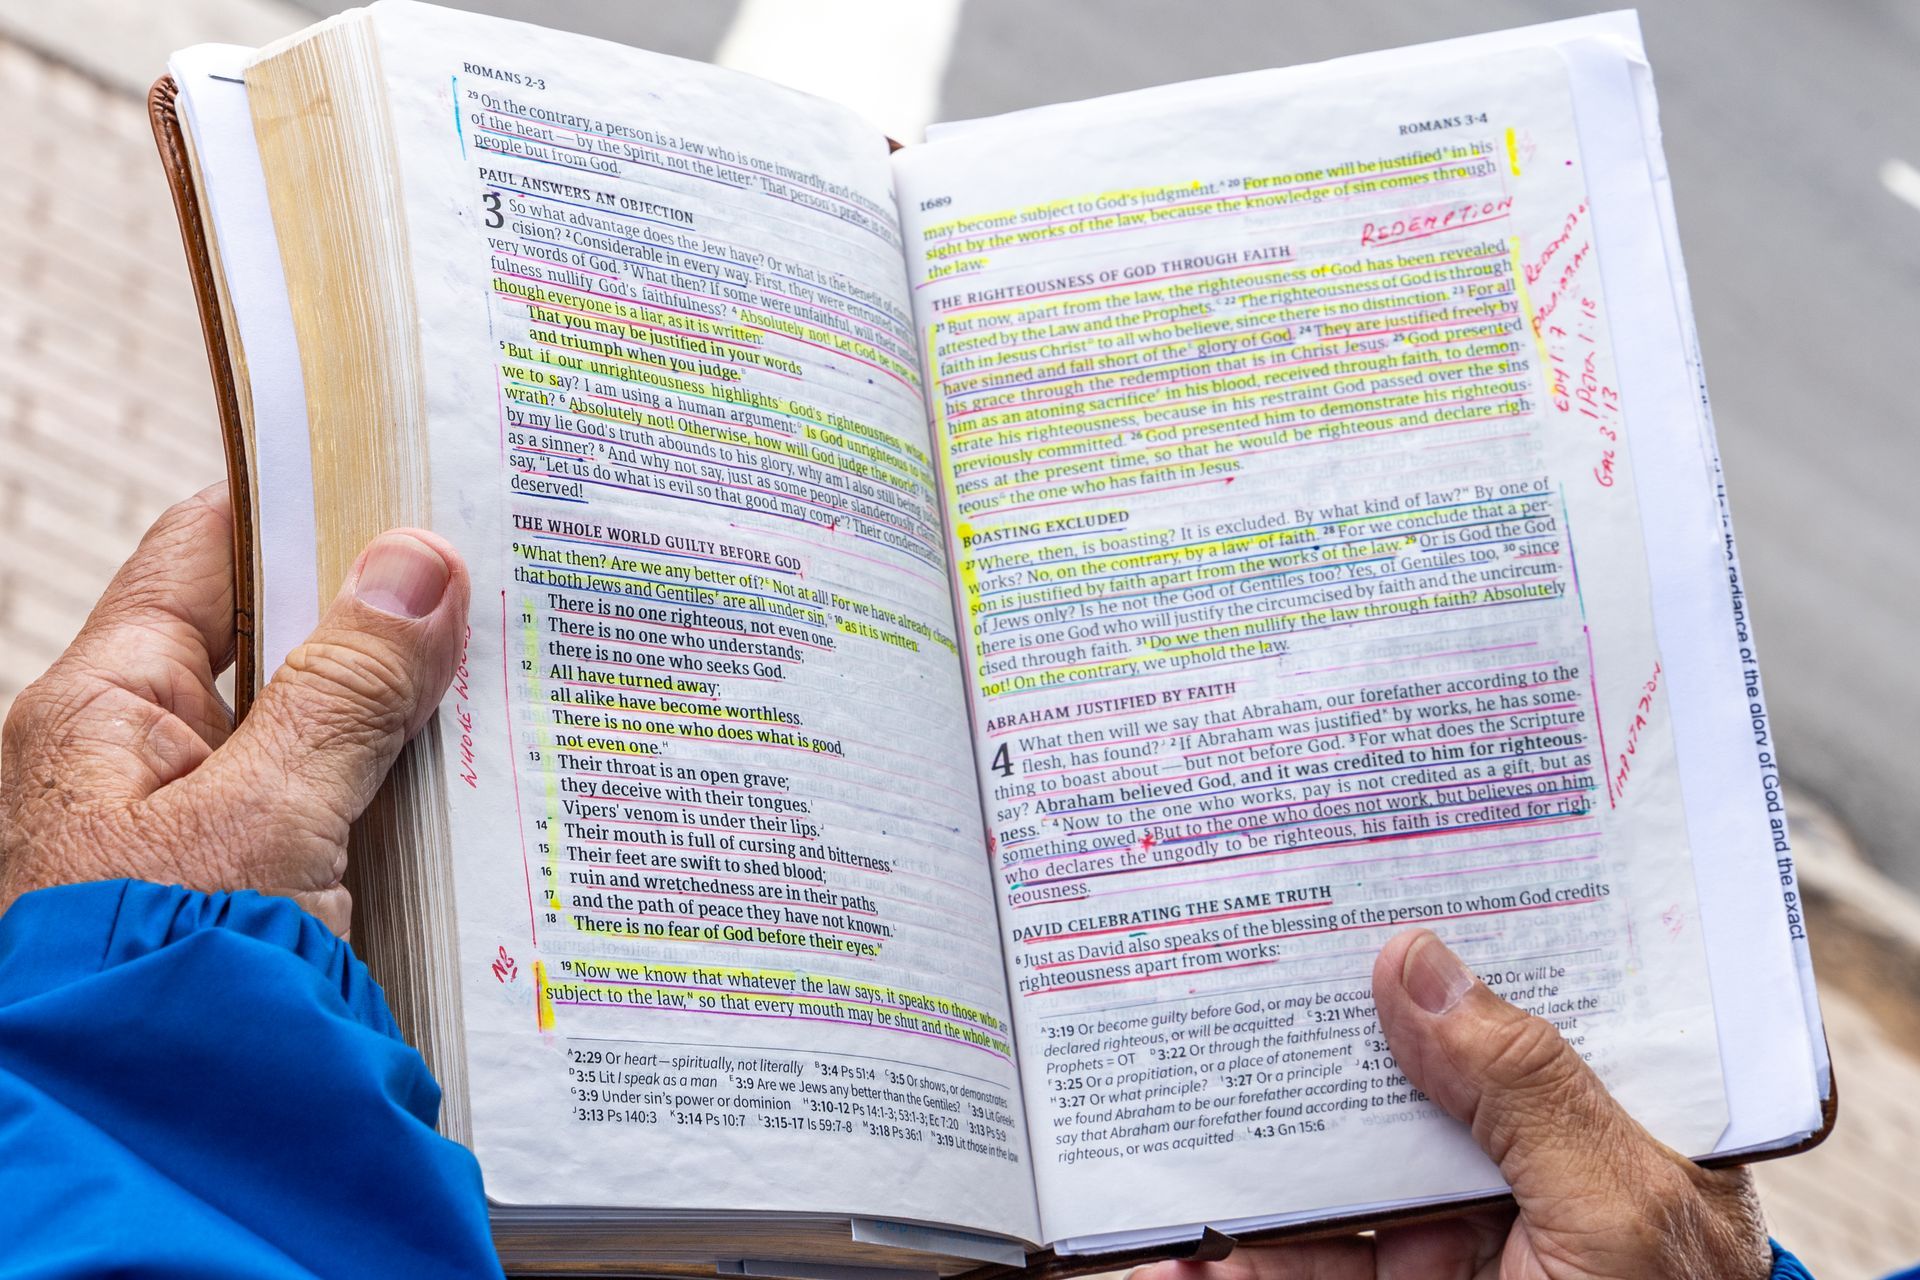 ROMANS 2-3
29 On the contrary, a person is a Jew who is one inwardly, and circumc
of the heart — by the Spirit, not the letter.A That person's praise is not
people but from God.
PAUL ANSWERS AN OBJECTION
3 So what advantage does the Jew have? Or what is the benefit of
cision? 2 Considerable in every way. First, they were entrusted
very words of God. 3 What then? If some were unfaithful, will their
fulness nullify God's faithfulness? 4 Absolutely not! Let God be true,
though everyone is a liar, as it is written:
That you may be justified in your words
and triumph when you judge.B
5 But if our unrighteousness highlightsC God's righteousness, what
we to say? I am using a human argument:D Is God unrighteous to
wrath? 6 Absolutely not! Otherwise, how will God judge the world?
by my lie God's truth abounds to his glory, why am I also still being
as a sinner? 8 And why not say, just as some people slanderously
say, "Let us do what is evil so that good may come"? Their condemnation
deserved!
THE WHOLE WORLD GUILTY BEFORE GOD
9 What then? Are we any better off?E Not at all! For we have already
that both Jews and GentilesF are all under sin,G 10 as it is written:
There is no one righteous, not even one.
11 There is no one who understands;
there is no one who seeks God.
12 All have turned away;
all alike have become worthless.
There is no one who does what is good,
not even one.H
13 Their throat is an open grave;
they deceive with their tongues.I
Vipers' venom is under their lips.J
14 Their mouth is full of cursing and bitterness.K
15 Their feet are swift to shed blood;
16 ruin and wretchedness are in their paths,
17 and the path of peace they have not known.L
18 There is no fear of God before their eyes.M
19 Now we know that whatever the law says, it speaks to those who are
subject to the law,N so that every mouth may be shut and the whole world
A 2:29 Or heart — spiritually, not literally B 3:4 Ps 51:4 C 3:5 Or shows, or demonstrates
D 3:5 Lit I speak as a man E 3:9 Are we Jews any better than the Gentiles? F 3:9 Lit Greeks
G 3:9 Under sin's power or dominion H 3:10-12 Ps 14:1-3; 53:1-3; Ec 7:20 I 3:13 Ps 5:9
J 3:13 Ps 140:3 K 3:14 Ps 10:7 L 3:15-17 Is 59:7-8 M 3:18 Ps 36:1 N 3:19 Lit those in the law
WHOLE WORLD
NB
1689
ROMANS 3-4
may become subject to God's judgment.A 20 For no one will be justifiedB in his
sight by the works of the law, because the knowledge of sin comes through
the law.
REDEMPTION
THE RIGHTEOUSNESS OF GOD THROUGH FAITH
21 But now, apart from the law, the righteousness of God has been revealed,
attested by the Law and the Prophets.C 22 The righteousness of God is through
faith in Jesus ChristD to all who believe, since there is no distinction. 23 For all
have sinned and fall short of theE glory of God. 24 They are justified freely by
his grace through the redemption that is in Christ Jesus. 25 God presented
him as an atoning sacrificeF in his blood, received through faith, to demon-
strate his righteousness, because in his restraint God passed over the sins
previously committed. 26 God presented him to demonstrate his righteous-
ness at the present time, so that he would be righteous and declare righ-
teousG the one who has faith in Jesus.
BOASTING EXCLUDED
27 Where, then, is boasting? It is excluded. By what kind of law?H By one of
works? No, on the contrary, by a lawI of faith. 28 For we conclude that a per-
son is justified by faith apart from the works of the law. 29 Or is God the God
of Jews only? Is he not the God of Gentiles too? Yes, of Gentiles too, 30 since
there is one God who will justify the circumcised by faith and the uncircum-
cised through faith. 31 Do we then nullify the law through faith? Absolutely
not! On the contrary, we uphold the law.
ABRAHAM JUSTIFIED BY FAITH
4 What then will we say that Abraham, our forefather according to the
flesh, has found?J 2 If Abraham was justifiedK by works, he has some-
thing to boast about — but not before God. 3 For what does the Scripture
say? Abraham believed God, and it was credited to him for righteous-
ness.L 4 Now to the one who works, pay is not credited as a gift, but as
something owed. 5 But to the one who does not work, but believes on him
who declares the ungodly to be righteous, his faith is credited for righ-
teousness.
DAVID CELEBRATING THE SAME TRUTH
6 Just as David also speaks of the blessing of the person to whom God credits
righteousness apart from works:
A 3:19 Or become guilty before God, or may be accou 20 Or will be
declared righteous, or will be acquitted C 3:21 When and the
Prophets = OT D 3:22 Or through the faithfulness of and lack the
F 3:25 Or a propitiation, or a place of atonement G
H 3:27 Or what principle? I 3:27 Or a principle J 4:1 Or
we found Abraham to be our forefather according to the
say that Abraham our forefather found according to the
righteous, or was acquitted L 4:3 Gn 15:6
EPH 1:7
1 PETER 1:18
GAL 3:13
IMPUTATION
is the radiance of the glory of God and the exact